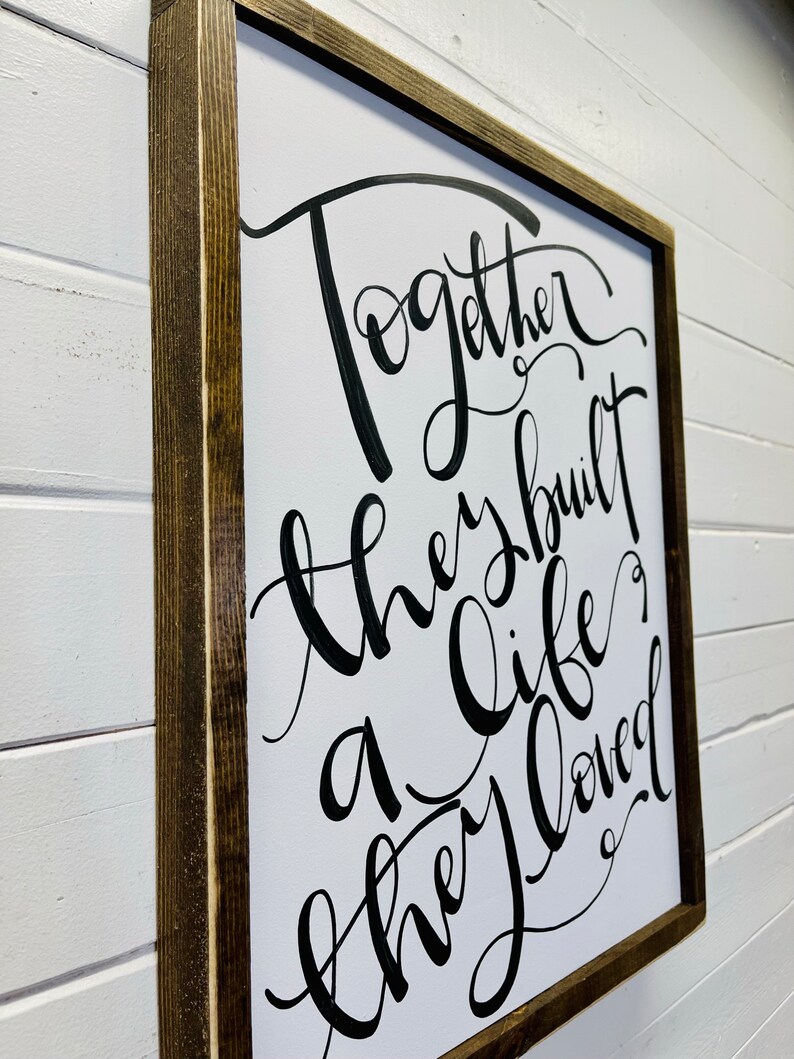 Together
they built
a life
they loved